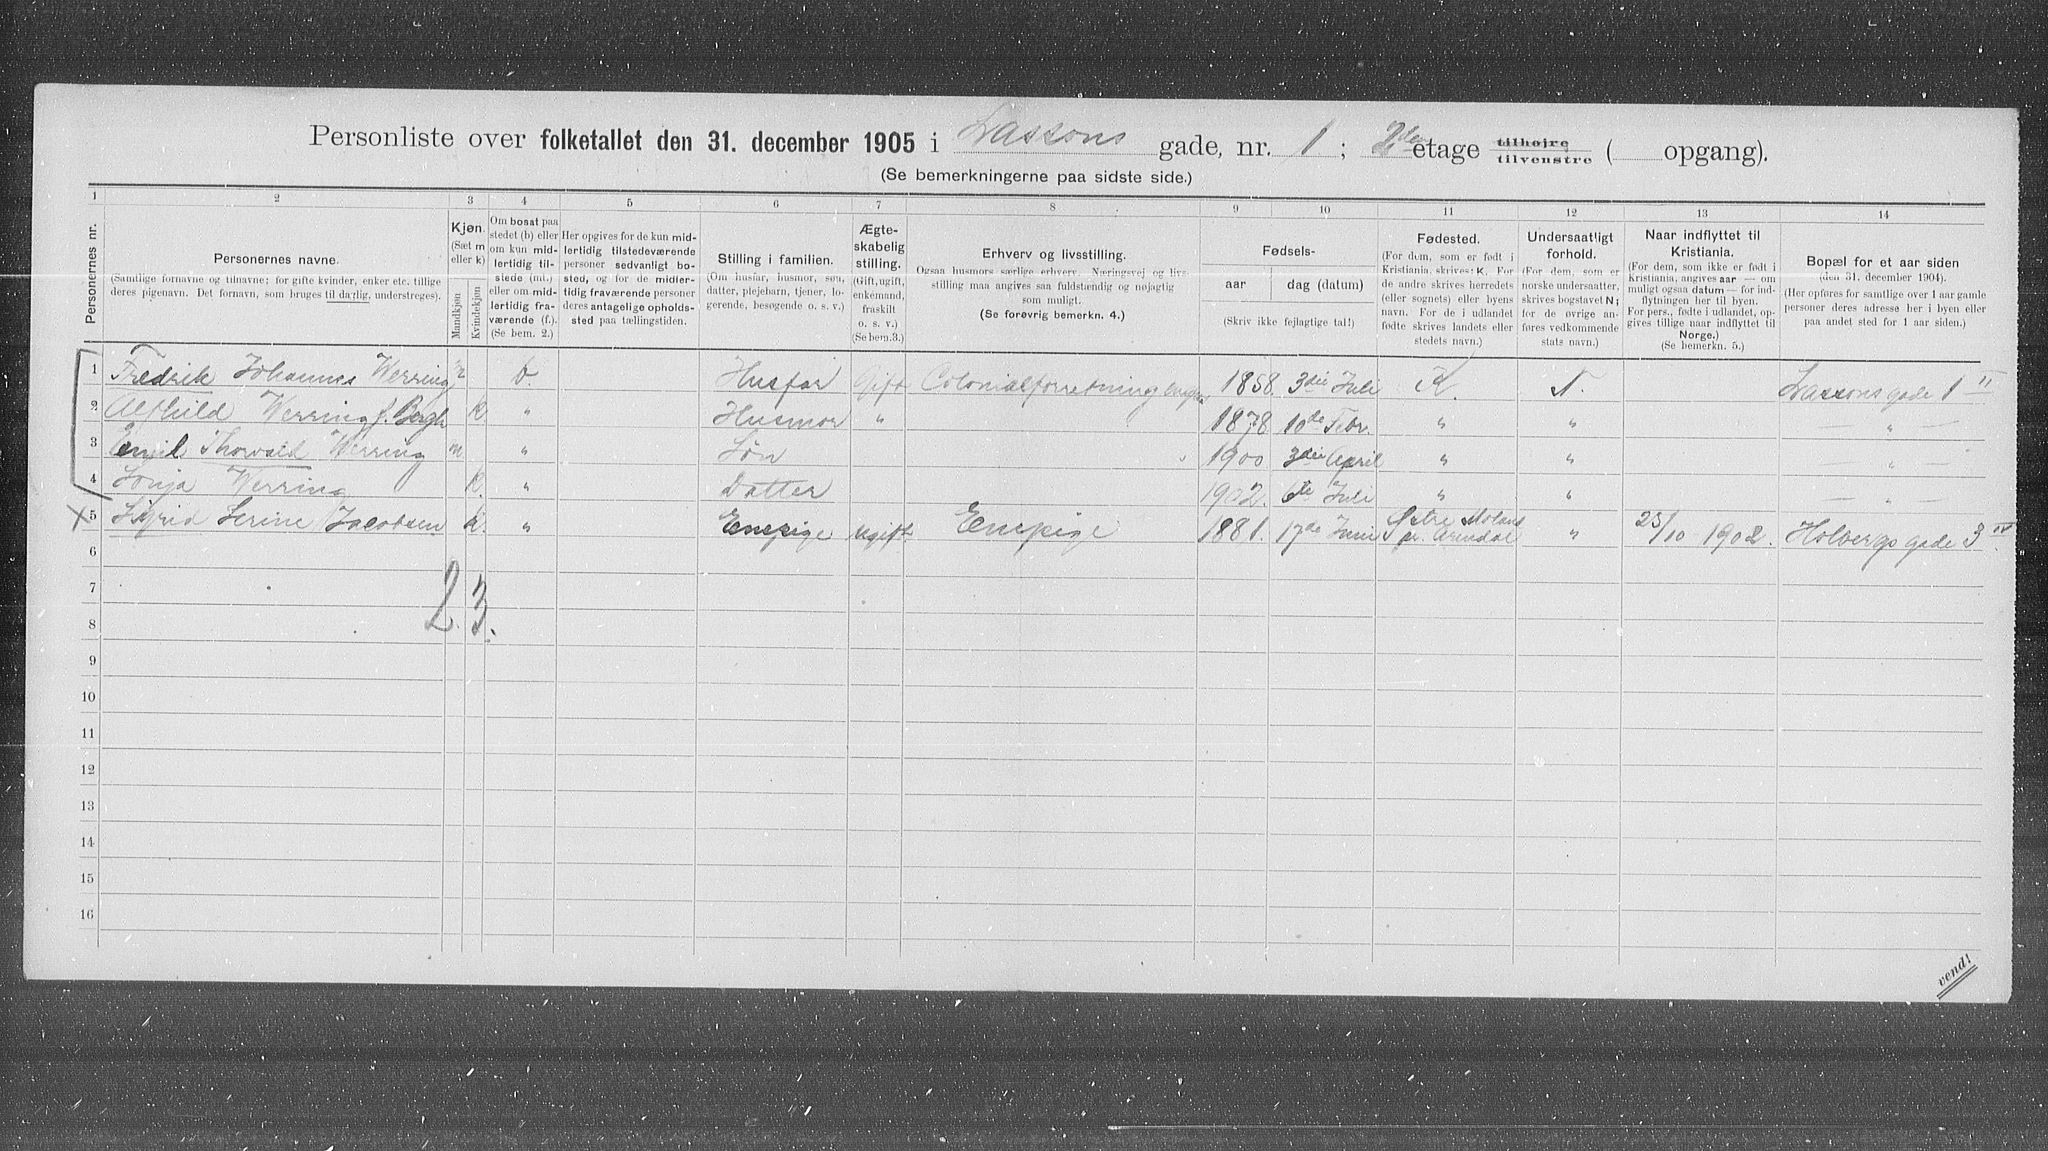 Personliste over folketallet den 31. december 1905 i Lassons gade, nr. 1; 2den etage tilhøjre tilvenstre ( opgang).
(Se bemerkningerne paa sidste side.)
1 2 3 4 5 6 7 8 9 10 11 12 13 14
Personernes nr.
Personernes navne.
(Samtlige fornavne og tilnavne; for gifte kvinder, enker etc. tillige deres pigenavn. Det fornavn, som bruges til daglig, understreges).
Kjøn.
(Sæt m eller k)
Mandkjøn
Kvindekjøn
Om bosat paa stedet (b) eller om kun midlertidig tilstede (mt.) eller om midlertidig fraværende (f.). (Se bem. 2.)
Her opgives for de kun midlertidig tilstedeværende personer sedvanligt bosted, og for de midlertidig fraværende personer deres antagelige opholdssted paa tællingstiden.
Stilling i familien.
(Om husfar, husmor, søn, datter, plejebarn, tjener, logerende, besøgende o. s. v.)
Ægteskabelig stilling.
(Gift, ugift, enkemand, fraskilt o. s. v.)
(Se bem.3.)
Erhverv og livsstilling.
Ogsaa husmors særlige erhverv. Næringsvej og livsstilling maa angives saa fuldstændig og nøjagtig som muligt.
(Se forøvrig bemerkn. 4.)
Fødsels-
aar dag (datum)
(Skriv ikke fejlagtige tal!)
Fødested.
(For dem, som er født i Kristiania, skrives: K. For de andre skrives herredets (eller sognets) eller byens navn. For de i udlandet fødte skrives landets eller stedets navn.)
Undersaatligt forhold.
(For dem, som er norske undersaatter, skrives bogstavet N; for de øvrige anføres vedkommende stats navn.)
Naar indflyttet til Kristiania.
(For dem, som ikke er født i Kristiania, angives aar — om muligt ogsaa datum — for indflytningen her til byen. For pers., fødte i udlandet, opgives tillige naar indflyttet til Norge.) (Se bemerkn. 5.)
Bopæl for et aar siden
(den 31. december 1904).
(Her opføres for samtlige over 1 aar gamle personer deres adresse her i byen eller paa andet sted for 1 aar siden.)
1 Fredrik Johannes Werring m b. Husfar Gift Colonialforretning 1858 3die Juli K. N. Lassons gade 1 II
2 Alfhild Werring f. Bergh K " Husmor " 1878 10de Febr. " " — " —
3 Emil Thorvald Werring m " Søn 1900 3die April " " — " —
4 Sonja Werring K. " Datter 1902. 6te Juli " " — " —
X 5 Sigrid Serine Jacobsen K. " Enepige ugift Enepige 1881. 17de Juni Østre Moland pr. Arendal " 25/10 1902. Holbergs gade 3 IV
6
7
2. 3.
8
9
10
11
12
13
14
15
16
vend!